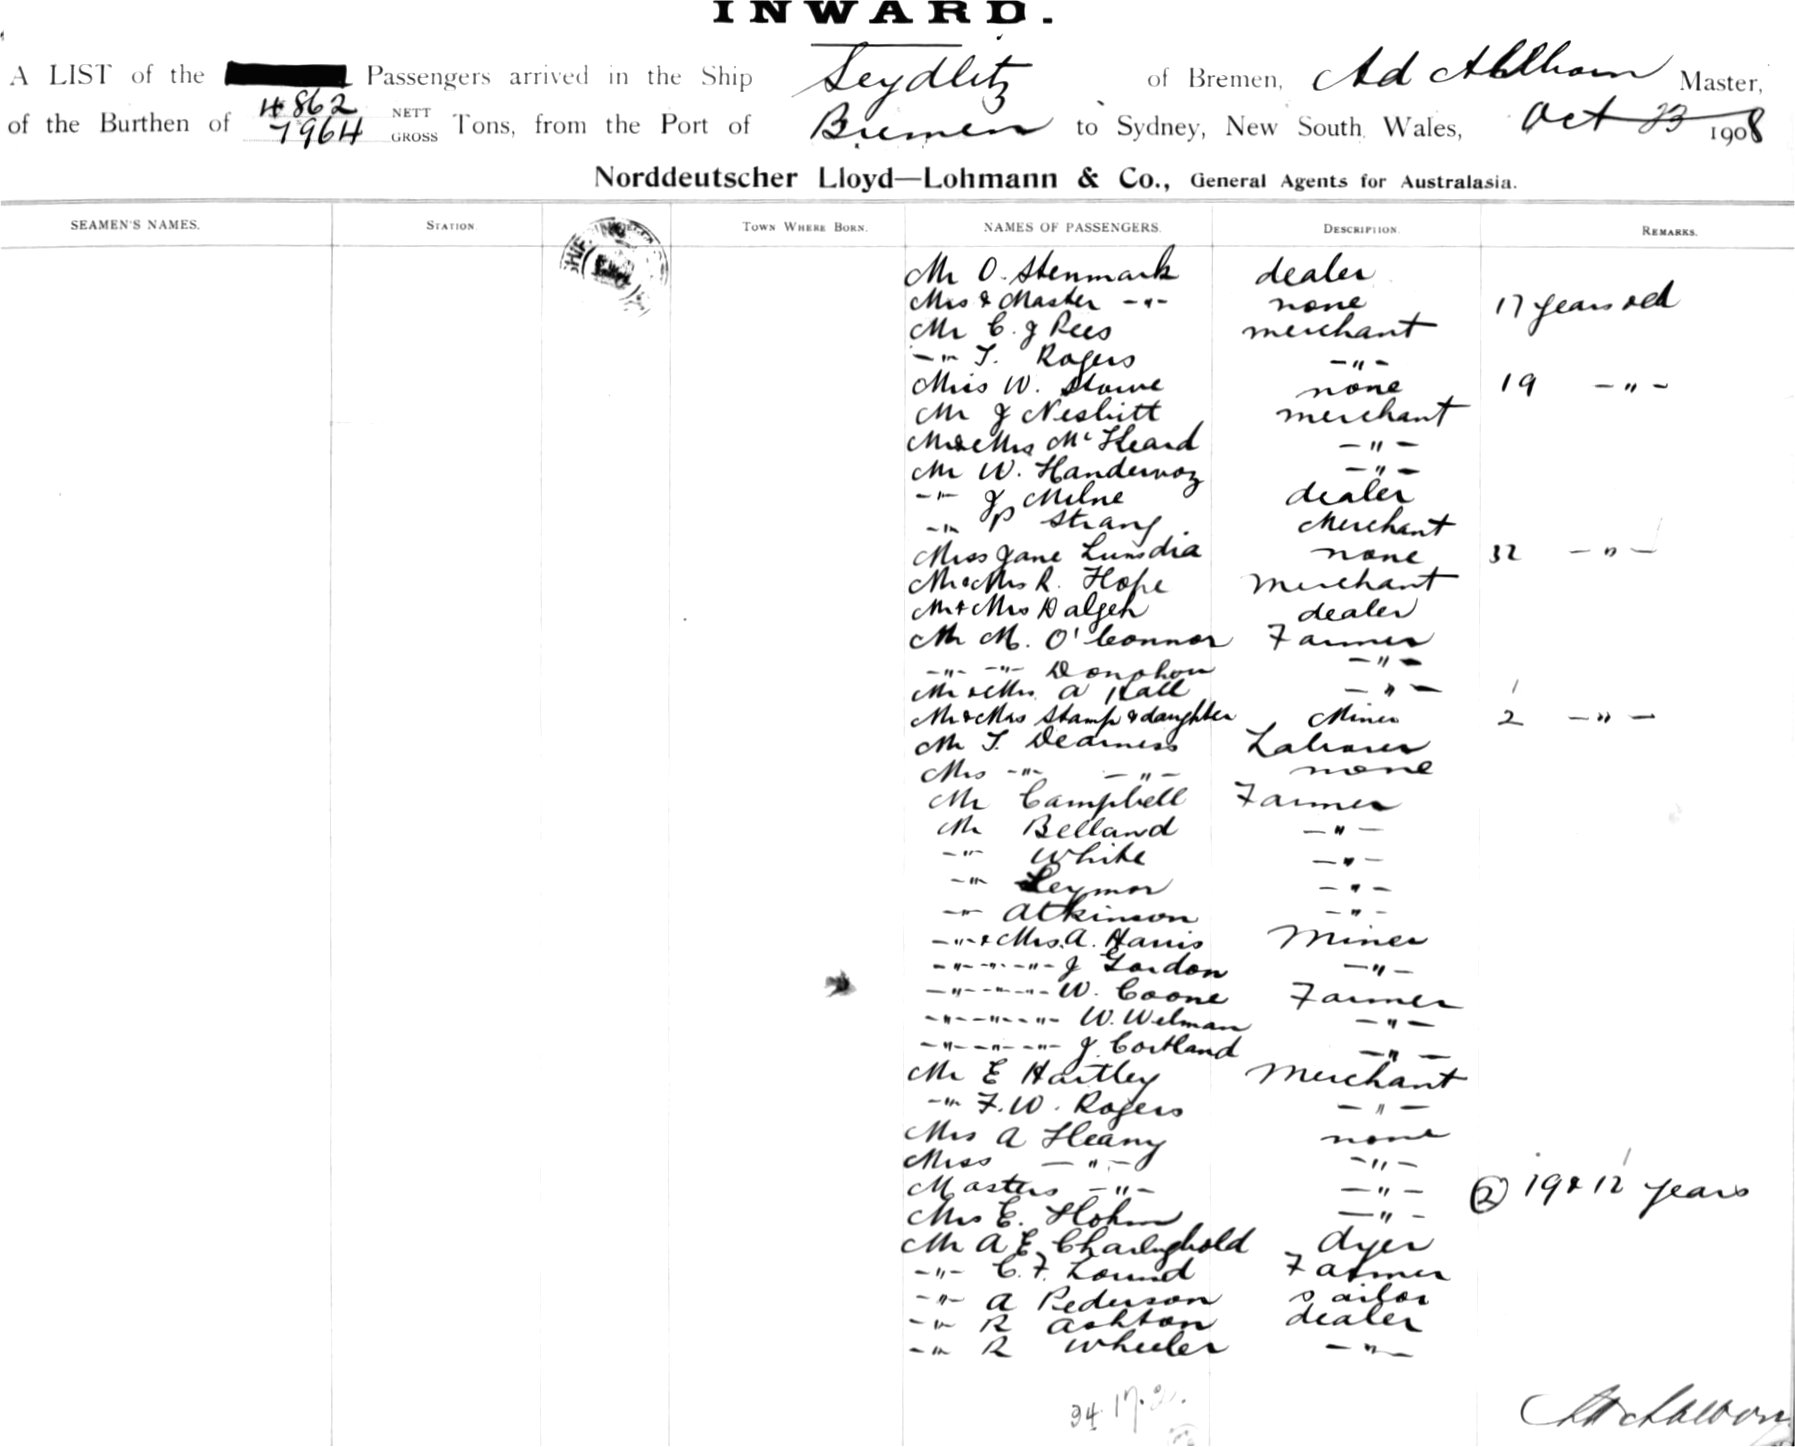 INWARD.
A LIST of the Passengers arrived in the Ship Seydlitz of Bremen, Ad Ahlborn Master,
of the Burthen of 4862 NETT 7964 GROSS Tons, from the Port of Bremen to Sydney, New South Wales, Oct 23 1908
Norddeutscher Lloyd—Lohmann & Co., General Agents for Australasia.
SEAMEN'S NAMES. STATION. TOWN WHERE BORN. NAMES OF PASSENGERS. DESCRIPTION. REMARKS.
Mr O. Stenmark dealer
Mrs & Master -"- none 17 years old
Mr C. J Rees merchant
-"- T. Rogers -"-
Miss W. Stowe none 19 -"-
Mr J Nesbitt merchant
Mr & Mrs Mc Heard -"-
Mr W. -"-
-"- J Milne dealer
-"- P Strang Merchant
Miss Jane none 32 -"-
Mr & Mrs R. Hope Merchant
Mr & Mrs dealer
Mr M. O'Connor Farmer
-"- -"- -"-
Mr & Mrs A Hall -"-
Mr & Mrs Stamp & daughter Miner 2 -"-
Mr T. Dearness Labourer
Mrs -"- -"- none
Mr Campbell Farmer
Mr Belland -"-
-"- White -"-
-"- Seymor -"-
-"- Atkinson -"-
-"- & Mrs. A. Harris Miner
-"- -"- -"- J Gordon -"-
-"- -"- -"- W. Coone Farmer
-"- -"- -"- W. Welman -"-
-"- -"- -"- J. Cortland -"-
Mr E Hartley Merchant
-"- F. W. Rogers -"-
Mrs A Heany none
Miss -"- -"-
Masters -"- -"- 2 19 & 12 years
Mrs E. Hohm -"-
Mr A E. dyer
-"- C. F. Lound Farmer
-"- A Pederson sailor
-"- R Ashton dealer
-"- R Wheeler -"-
34 17.
Ad Ahlborn